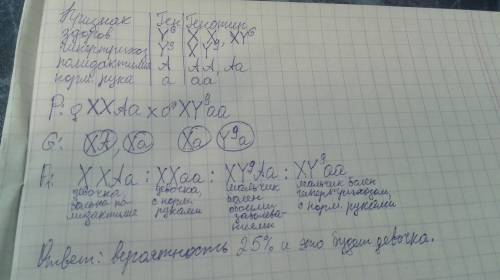 Признак | Ген | Генотип
здоров | Yᴳ | XX, XYᴳ
гипертрихоз | Yᵍ | XYᵍ
полидактилия | A | AA, Aa
норм. рука | a | aa
P: ♀ XXAa x ♂ XYᵍaa
G: XA, Xa Xa Yᵍa
F₁: XXAa : XXaa : XYᵍAa : XYᵍaa
девочка больна полидактилией
девочка, с норм. руками
мальчик болен обоими заболеваниями
мальчик болен гипертрихозом, с норм. руками
Ответ: вероятность 25% и это будет девочка.